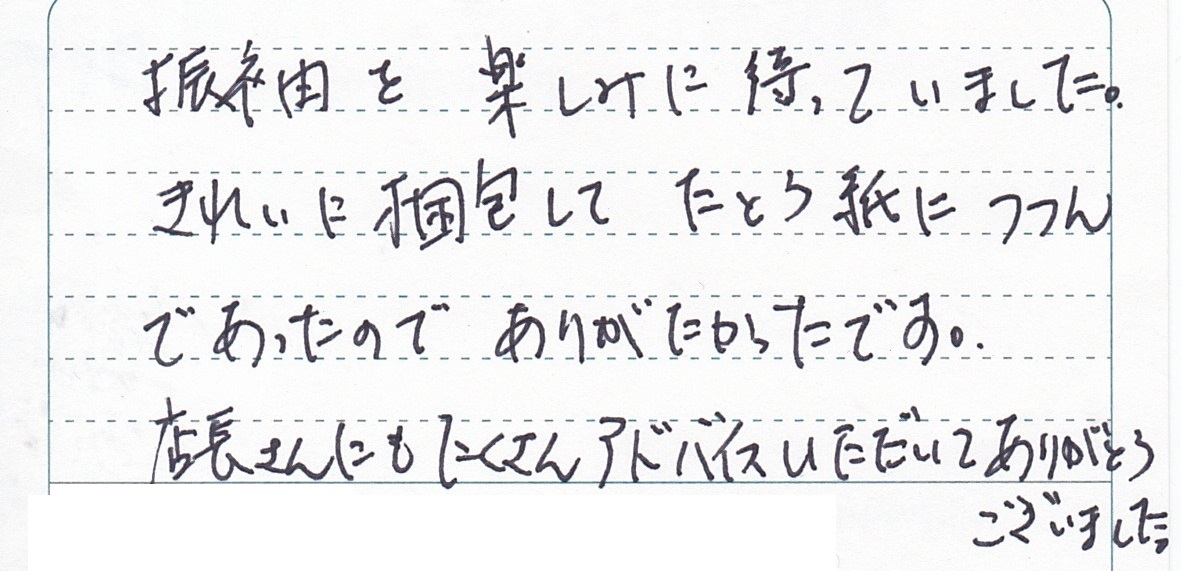 振袖を楽しみに待っていました。
きれいに梱包して たとう紙につつん
であったので ありがたかったです。
店長さんにもたくさんアドバイスいただいてありがとう
ございました